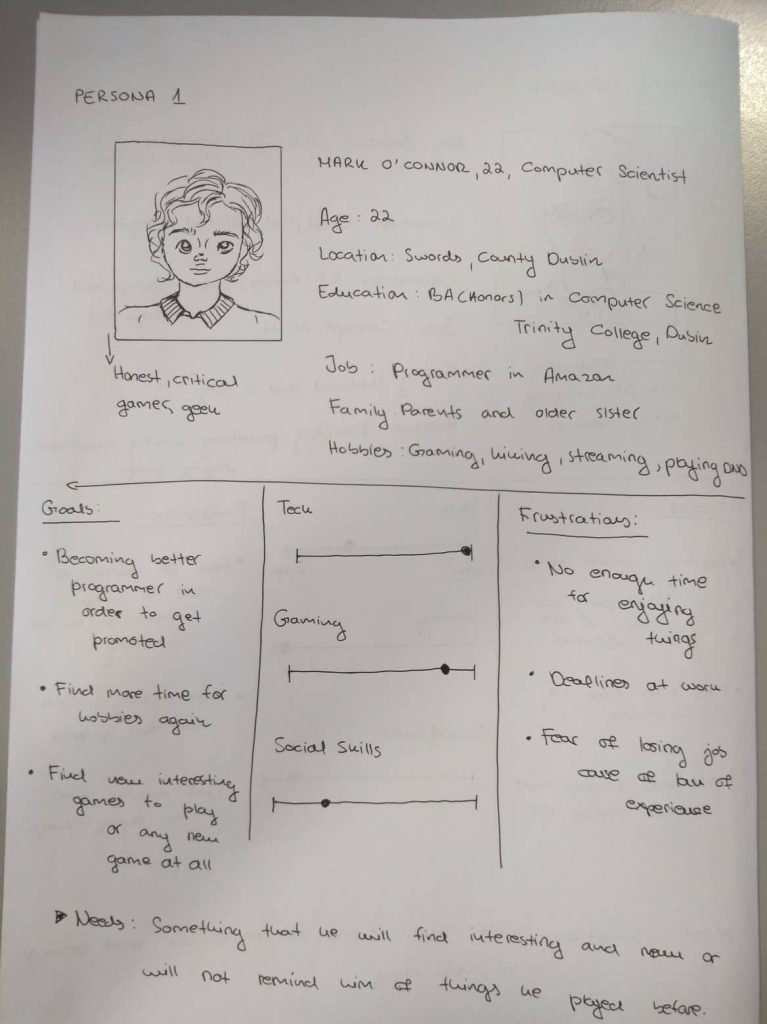 PERSONA 1
MARK O'CONNOR, 22, Computer Scientist
Age: 22
Location: Swords, County Dublin
Education: BA(Honors) in Computer Science
Trinity College, Dublin
Job: Programmer in Amazon
Family: Parents and older sister
Hobbies: Gaming, hiking, streaming, playing DND
Honest, critical
gamer, geek
Goals:
• Becoming better
programmer in
order to get
promoted
• Find more time for
hobbies again
• Find new interesting
games to play
or any new
game at all
Tech
Gaming
Social Skills
Frustrations:
• No enough time
for enjoying
things
• Deadlines at work
• Fear of losing job
cause of lack of
experience
Needs: Something that he will find interesting and new or
will not remind him of things he played before.